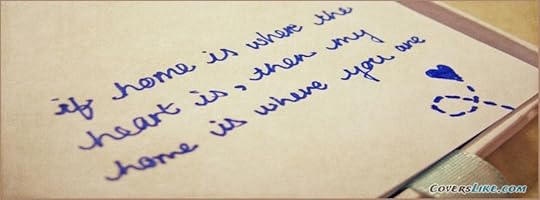 if home is where the
heart is, then my
home is where you are
COVERSLIKE.COM